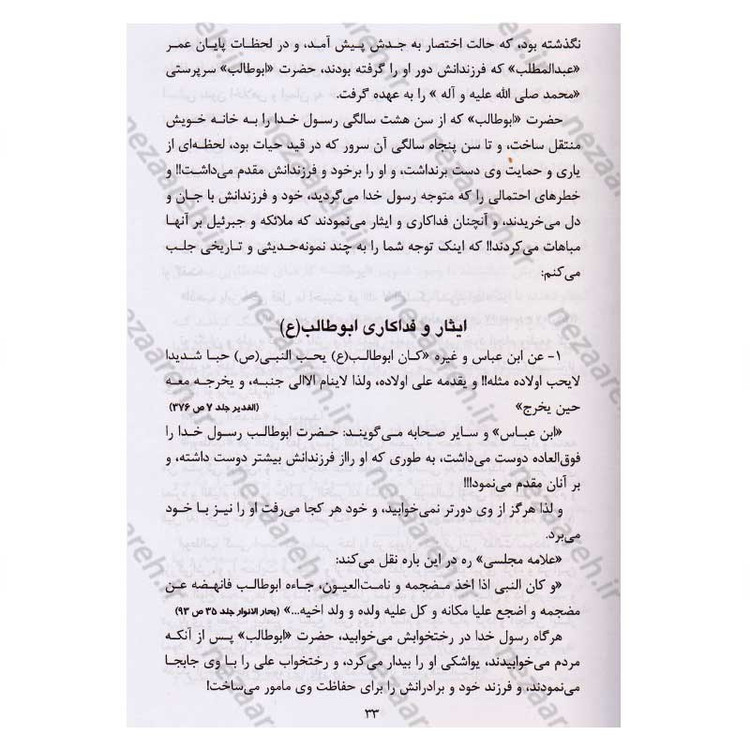 نگذشته بود، که حالت احتضار به جدش پیش آمد، و در لحظات پایان عمر
«عبدالمطلب» که فرزندانش دور او را گرفته بودند، حضرت «ابوطالب» سرپرستی
«محمد صلی الله علیه و آله » را به عهده گرفت.
حضرت «ابوطالب» که از سن هشت سالگی رسول خدا را به خانه خویش
منتقل ساخت، و تا سن پنجاه سالگی آن سرور که در قید حیات بود، لحظه‌ای از
یاری و حمایت وی دست برنداشت، و او را برخود و فرزندانش مقدم می‌داشت!! و
خطرهای احتمالی را که متوجه رسول خدا می‌گردید، خود و فرزندانش با جان و
دل می‌خریدند، و آنچنان فداکاری و ایثار می‌نمودند که ملائکه و جبرئیل بر آنها
مباهات می‌کردند!! که اینک توجه شما را به چند نمونه‌حدیثی و تاریخی جلب
می‌کنم:
ایثار و فداکاری ابوطالب(ع)
۱- عن ابن عباس و غیره «کان ابوطالب(ع) یحب النبی(ص) حبا شدیدا
لایحب اولاده مثله!! و یقدمه علی اولاده، ولذا لاینام الاالی جنبه، و یخرجه معه
حین یخرج» (الغدیر جلد ۷ ص ۳۷۶)
«ابن عباس» و سایر صحابه می‌گویند: حضرت ابوطالب رسول خدا را
فوق‌العاده دوست می‌داشت، به طوری که او رااز فرزندانش بیشتر دوست داشته، و
بر آنان مقدم می‌نمود!!!
و لذا هرگز از وی دورتر نمی‌خوابید، و خود هر کجا می‌رفت او را نیز با خود
می‌برد.
«علامه مجلسی» ره در این باره نقل می‌کند:
«و کان النبی اذا اخذ مضجمه و نامت‌العیون، جاءه ابوطالب فانهضه عن
مضجمه و اضجع علیا مکانه و کل علیه ولده و ولد اخیه...» (بحار الانوار جلد ۳۵ ص ۹۳)
هرگاه رسول خدا در رختخوابش می‌خوابید، حضرت «ابوطالب» پس از آنکه
مردم می‌خوابیدند، یواشکی او را بیدار می‌کرد، و رختخواب علی را با وی جابجا
می‌نمودند، و فرزند خود و برادرانش را برای حفاظت وی مامور می‌ساخت!
۳۳
nezaareh.ir